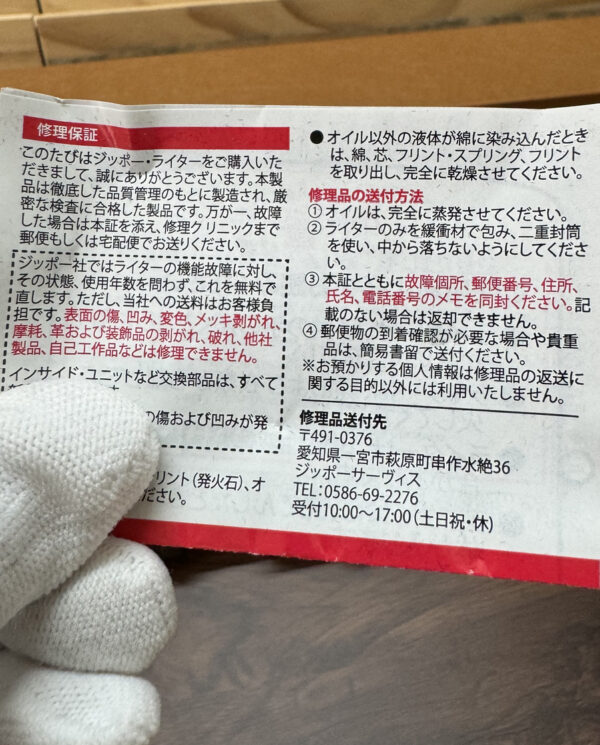 修理保証
このたびはジッポー・ライターをご購入いた
だきまして、誠にありがとうございます。本製
品は徹底した品質管理のもとに製造され、厳
密な検査に合格した製品です。万が一、故障
した場合は本証を添え、修理クリニックまで
郵便もしくは宅配便でお送りください。
ジッポー社ではライターの機能故障に対し、
その状態、使用年数を問わず、これを無料で
直します。ただし、当社への送料はお客様負
担です。表面の傷、凹み、変色、メッキ剥がれ、
摩耗、革および装飾品の剥がれ、破れ、他社
製品、自己工作品などは修理できません。
インサイド・ユニットなど交換部品は、すべて
の傷および凹みが発
リント(発火石)、オ
ださい。
●オイル以外の液体が綿に染み込んだとき
は、綿、芯、フリント・スプリング、フリント
を取り出し、完全に乾燥させてください。
修理品の送付方法
①オイルは、完全に蒸発させてください。
②ライターのみを緩衝材で包み、二重封筒
を使い、中から落ちないようにしてくださ
い。
③本証とともに故障個所、郵便番号、住所、
氏名、電話番号のメモを同封ください。記
載のない場合は返却できません。
④郵便物の到着確認が必要な場合や貴重
品は、簡易書留で送付ください。
※お預かりする個人情報は修理品の返送に
関する目的以外には利用いたしません。
修理品送付先
〒491-0376
愛知県一宮市萩原町串作水絶36
ジッポーサーヴィス
TEL:0586-69-2276
受付10:00〜17:00(土日祝・休)